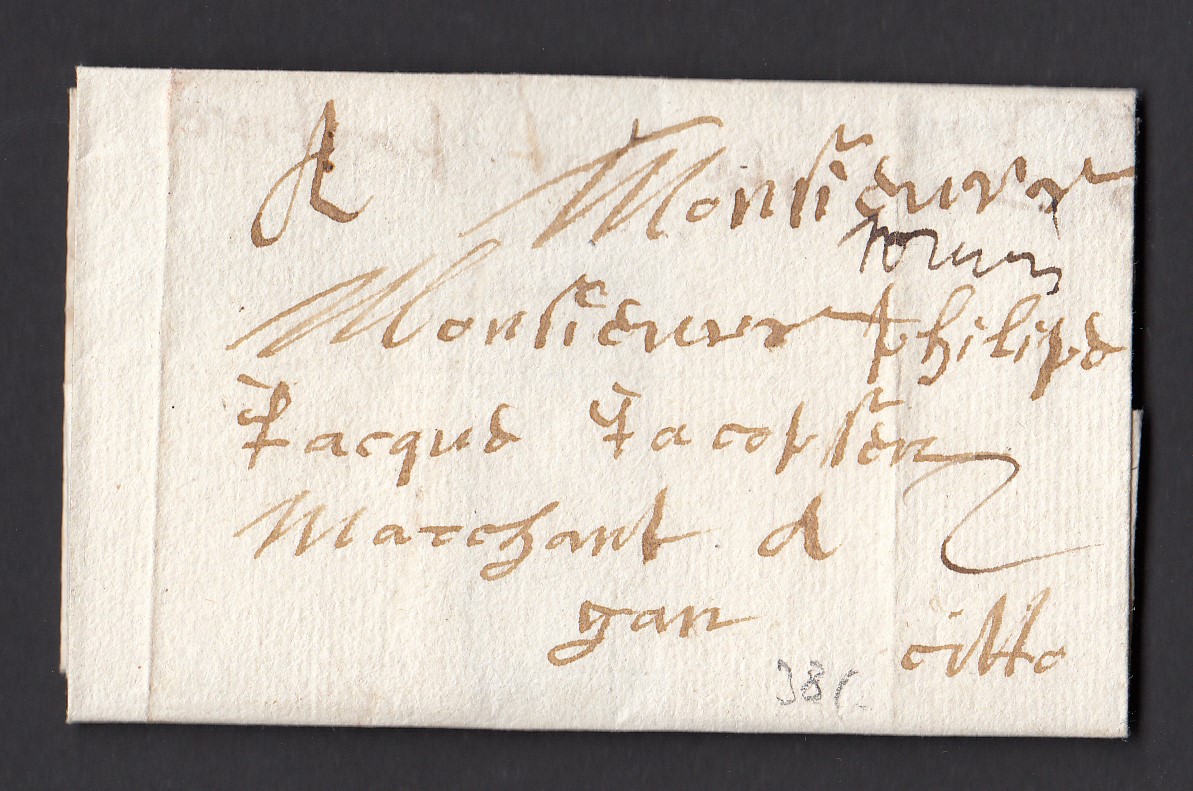 A Monsieuvr
Monsieuvr Philipe
Jacque Jacopsen
Marchant A
gan citto